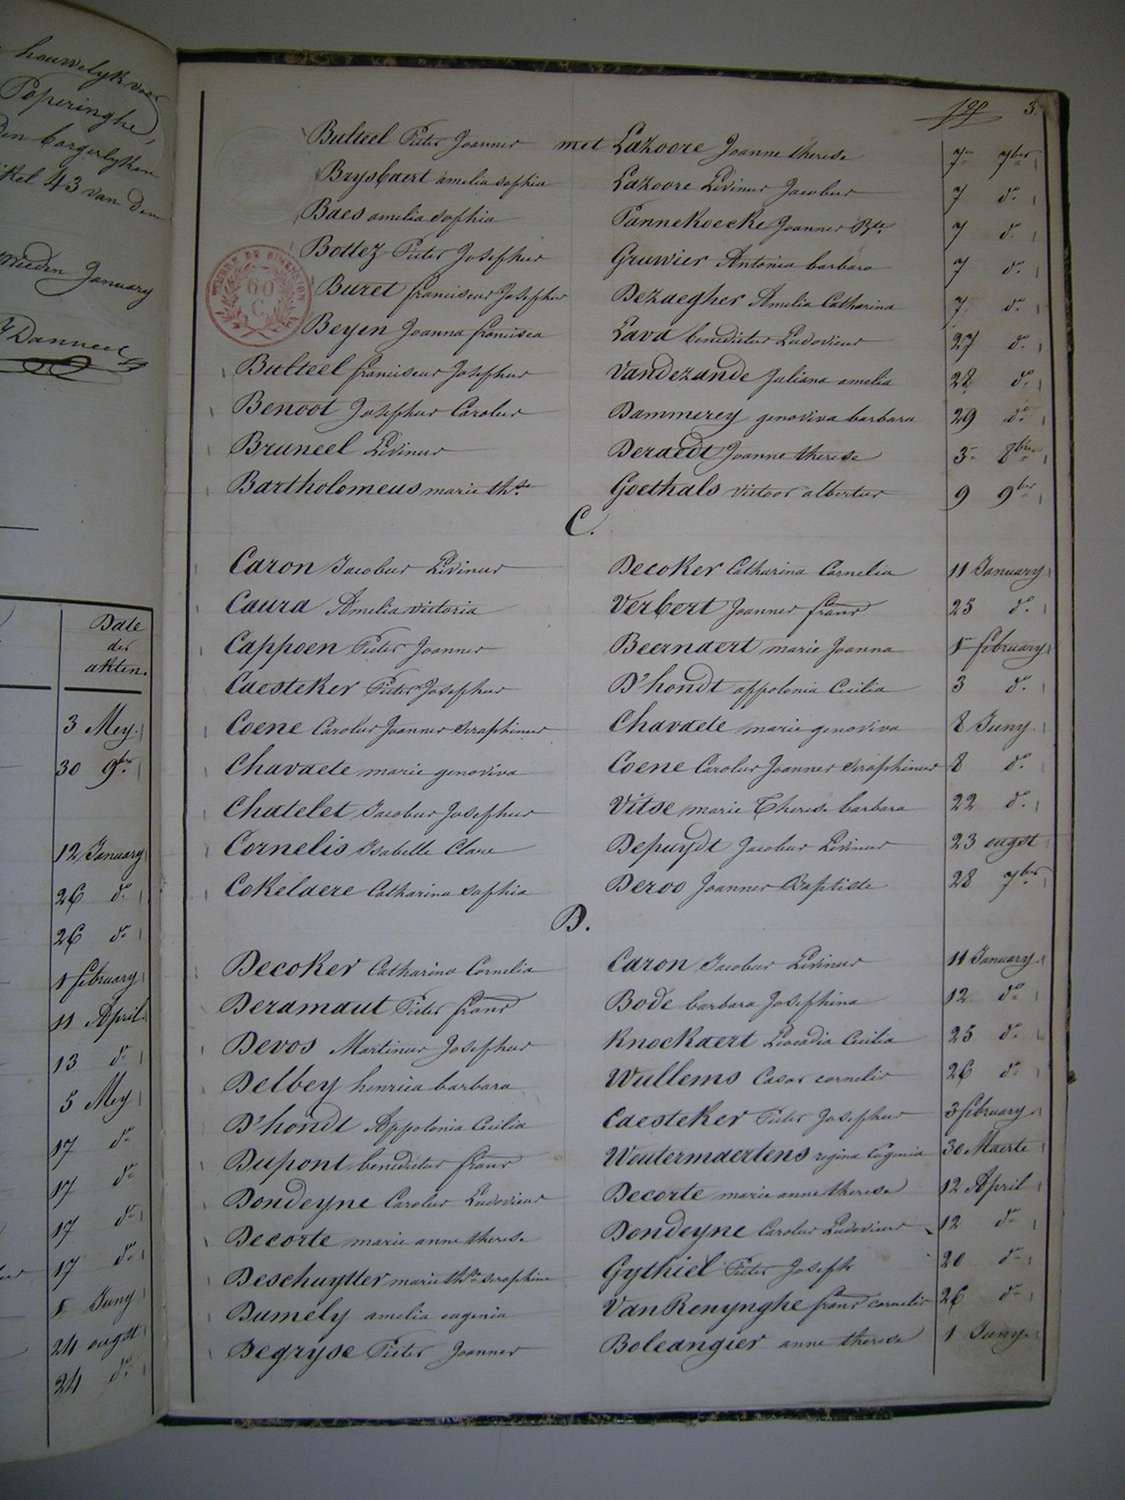 houwelyk voor
Poperinghe,
den borgerlyken
43 van den
January
Danneel
Date
der
akten.
3 Mey.
30 9bre
12 January
26 do
26 do
1 february
11 April
13 do
5 Mey
17 do
17 do
17 do
17 do
1 Juny
24 ougst
24 do
3.
Bulteel Pieter Joannes met Lazoore Joanne therese 7 7bre
Brysbaert amelia sophia Lazoore Livinus Jacobus 7 do
Baes amelia sophia Pannekoecke Joannes Bte 7 do
Bottez Pieter Josephus Gruwier Antonia barbara 7 do
Buret franciscus Josephus Dezaegher Amelia Catharina 7 do
Beyen Joanna francisca Lava benedictus Ludovicus 27 do
Bulteel franciscus Josephus Vandezande Juliana amelia 28 do
Benoot Josephus Carolus Dammerey genoviva barbara 29 do
Bruneel Livinus Deraedt Joanne therese 3 8bre
Bartholomeus marie thse Goethals victoor albertus 9 9bre
C.
Caron Jacobus Livinus Decoker Catharina Cornelia 11 January
Caura Amelia victoria Verbert Joannes frans 25 do
Cappoen Pieter Joannes Beernaert marie Joanna 1 february
Caesteker Pieter Josephus D'hondt appolonia Cicilia 3 do
Coene Carolus Joannes Seraphinus Chavaete marie genoviva 8 Juny
Chavaete marie genoviva Coene Carolus Joannes Seraphinus 8 do
Chatelet Jacobus Josephus Vitse marie Therese barbara 22 do
Cornelis Isabelle Clare Depuydt Jacobus Livinus 23 ougst
Cokelaere Catharina sophia Deroo Joannes Baptiste 28 7bre
D.
Decoker Catharina Cornelia Caron Jacobus Livinus 11 January
Deramaut Pieter frans Bode barbara Josephina 12 do
Devos Martinus Josephus Knockaert Liocadia Cicilia 25 do
Delbey henrica barbara Wullems Cesar cornelis 26 do
D'hondt Appolonia Cicilia Caesteker Pieter Josephus 3 february
Dupont benedictus frans Woutermaertens regina Eugenia 30 Maerte
Dondeyne Carolus Ludovicus Decorte marie anne therese 12 April
Decorte marie anne therese Dondeyne Carolus Ludovicus 12 do
Deschuytter marie thse seraphine Gythiel Pieter Joseph 20 do
Dumely amelia eugenia VanRenynghe frans cornelis 26 do
Degryse Pieter Joannes Boleangier anne therese 1 Juny